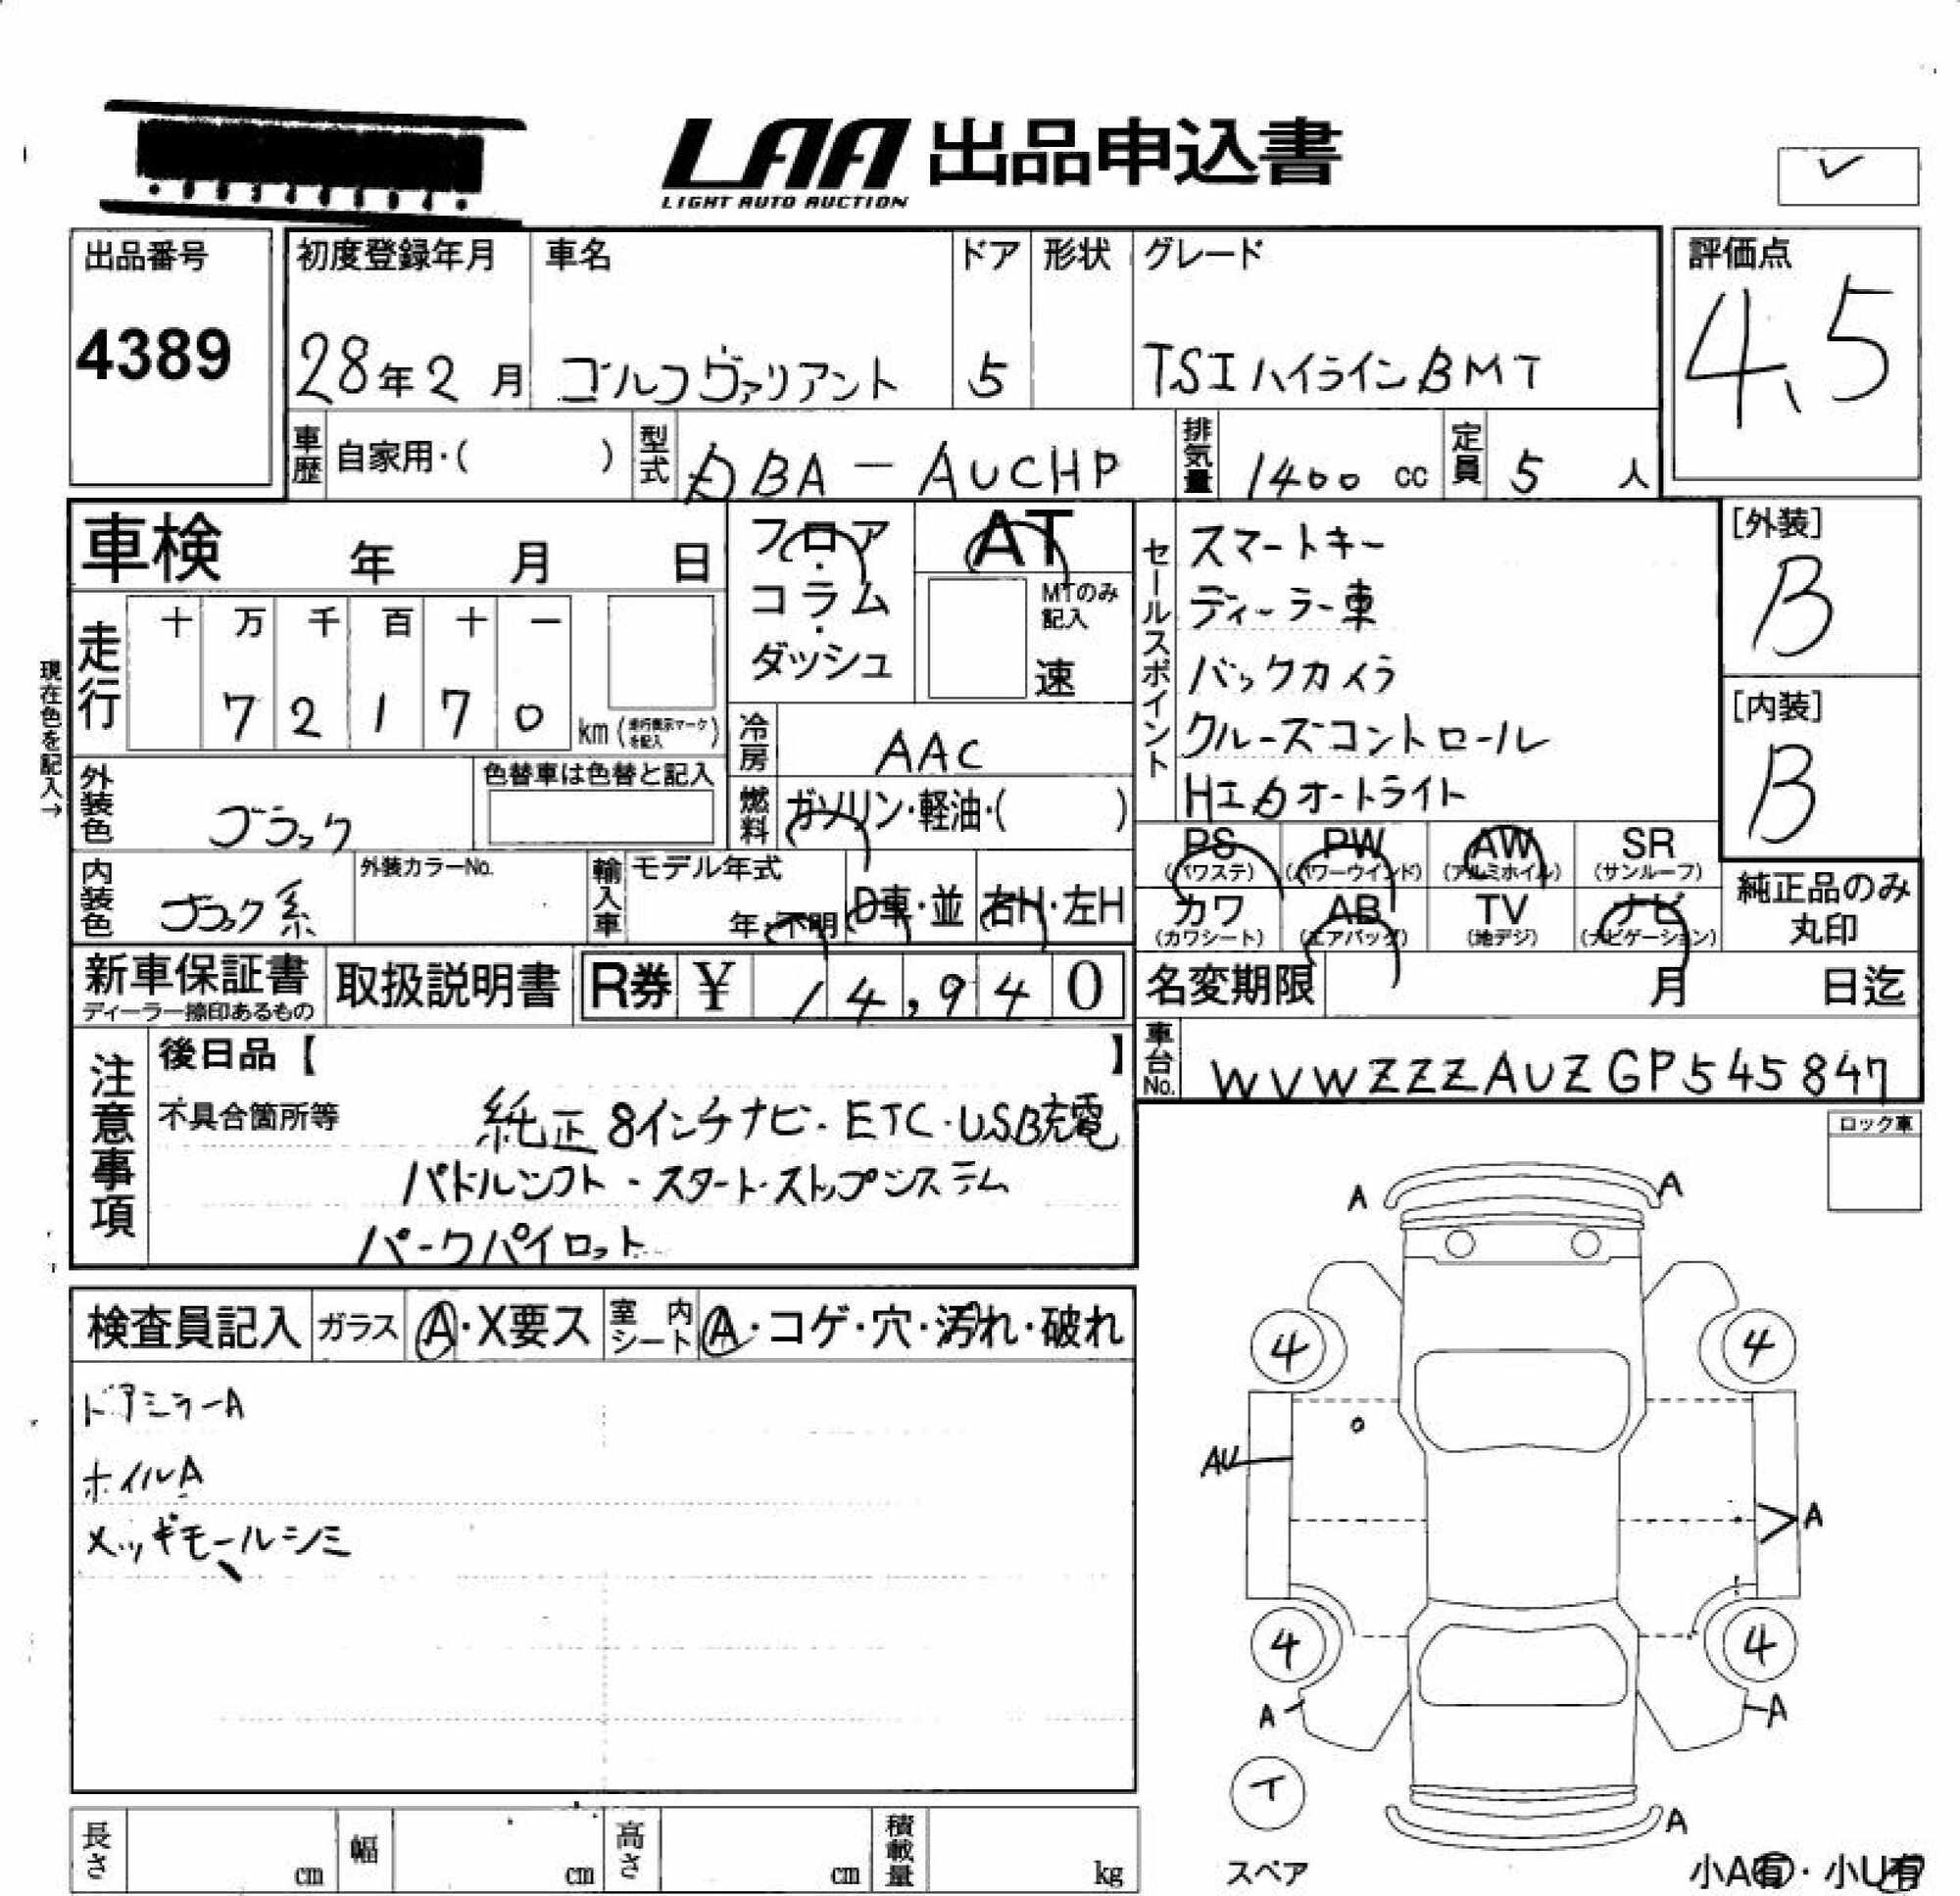 LAA 出品申込書
LIGHT AUTO AUCTION
出品番号
4389
初度登録年月
28年2月
車名
ゴルフヴァリアント
ドア
5
形状
グレード
TSIハイラインBMT
評価点
4.5
車歴 自家用・( )
型式 DBA-AUCHP
排気量 1400 cc
定員 5 人
車検 年 月 日
フロア・コラム・ダッシュ
AT
MTのみ記入
速
セールスポイント
スマートキー
ディーラー車
バックカメラ
クルーズコントロール
HIDオートライト
[外装]
B
[内装]
B
現在色を記入→
走行 十 万 千 百 十 一
7 2 1 7 0 km
冷房 AAC
外装色 ブラック
色替車は色替と記入
燃料 ガソリン・軽油・( )
内装色 ブラック系
外装カラーNo.
輸入車 モデル年式
年・不明 D車・並 右H・左H
PS (パワステ)
PW (パワーウインド)
AW (アルミホイル)
SR (サンルーフ)
カワ (カワシート)
AB (エアバッグ)
TV (地デジ)
ナビ (ナビゲーション)
純正品のみ丸印
新車保証書
ディーラー捺印あるもの
取扱説明書
R券 ¥ 14,940
名変期限 月 日迄
車台No. WVWZZZAUZGP545847
注意事項
後日品【 】
不具合箇所等
純正8インチナビ・ETC・USB充電
パドルシフト・スタート・ストップシステム
パークパイロット
ロック車
検査員記入 ガラス A・X要ス 室内シート A・コゲ・穴・汚れ・破れ
ドアミラーA
ホイルA
メッキモールシミ
A A
4 4
AU
A
4 4
A A
イ
スペア
A
小A有・小U有
長さ cm 幅 cm 高さ cm 積載量 kg